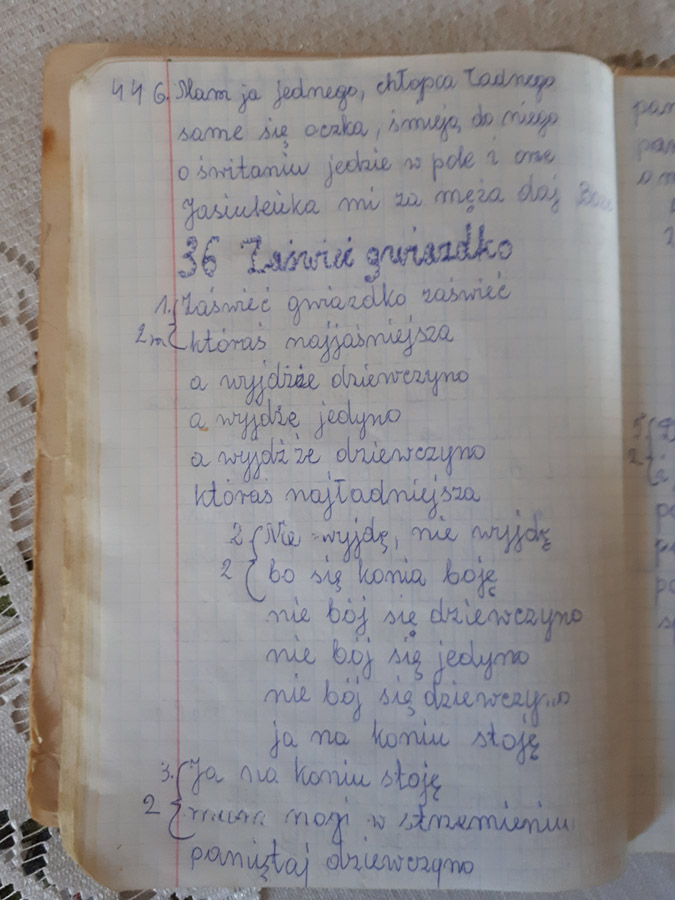 446. Mam ja jednego, chłopca ładnego
same się oczka, śmieją do niego
o świtaniu jedzie w pole i orze
Jasiuleńka mi za męża daj Boże
36 Zaświeć gwiazdko
1. Zaświeć gwiazdko zaświeć
2 któraś najjaśniejsza
a wyjdźże dziewczyno
a wyjdźe jedyno
a wyjdźże dziewczyno
któraś najładniejsza
2 Nie wyjdę, nie wyjdę
2 bo się konia boję
nie bój się dziewczyno
nie bój się jedyno
nie bój się dziewczyno
ja na koniu stoję
3. Ja na koniu stoję
2 mam nogi w strzemieniu
pamiętaj dziewczyno